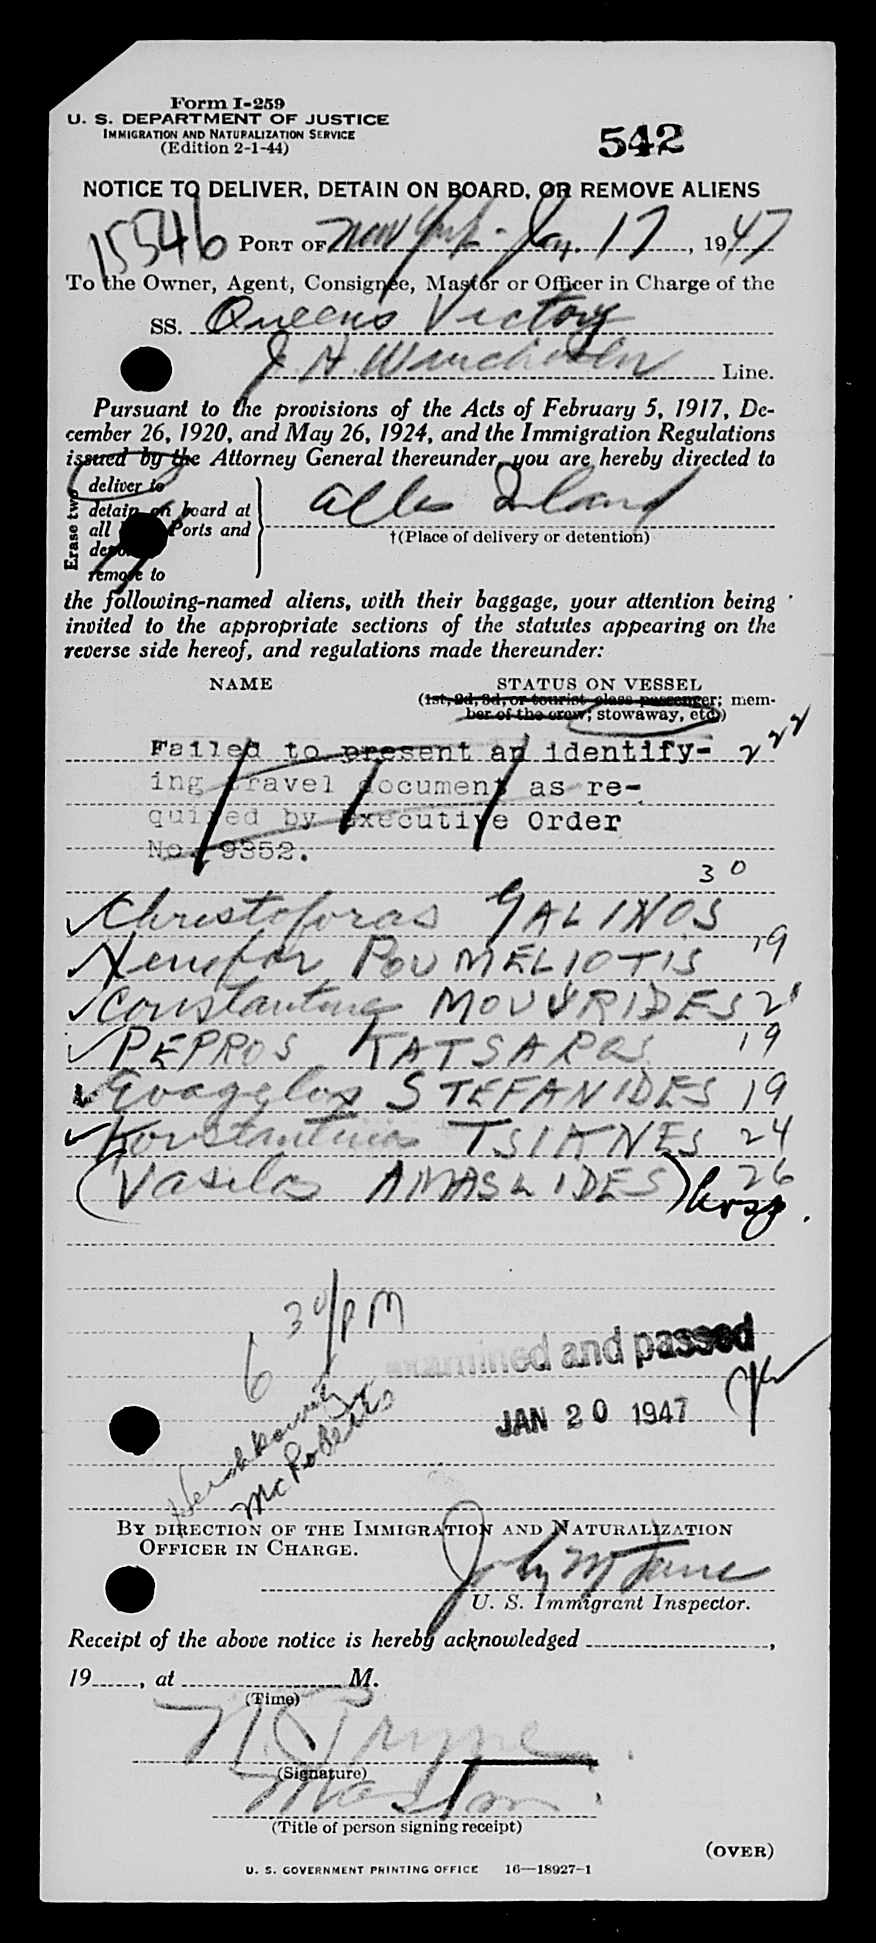 Form I-259
U. S. DEPARTMENT OF JUSTICE
IMMIGRATION AND NATURALIZATION SERVICE
(Edition 2-1-44)
542
NOTICE TO DELIVER, DETAIN ON BOARD, OR REMOVE ALIENS
15546
PORT OF New York - Jan. 17, 1947
To the Owner, Agent, Consignee, Master or Officer in Charge of the
SS. Queens Victory
J. H. Winchester Line.
Pursuant to the provisions of the Acts of February 5, 1917, De-
cember 26, 1920, and May 26, 1924, and the Immigration Regulations
issued by the Attorney General thereunder, you are hereby directed to
Erase two
deliver to
detain on board at
all Ports and
remove to
Ellis Island
†(Place of delivery or detention)
the following-named aliens, with their baggage, your attention being
invited to the appropriate sections of the statutes appearing on the
reverse side hereof, and regulations made thereunder:
NAME
STATUS ON VESSEL
(1st, 2d, 3d, or tourist class passenger; mem-
ber of the crew; stowaway, etc.)
Failed to present an identify-
222
ing travel document as re-
quired by Executive Order
No. 9352.
Christoforas GALINOS 30
POUMELIOTIS 19
Constantine 2
PEPROS KATSAROS 19
Evagelos STEFANIDES 19
Konstantinos TSIANES 24
(Vasilos AMASLIDES) 26
Hosp.
6 30/PM
examined and passed
JAN 20 1947
Hershkowitz
McRoberts
BY DIRECTION OF THE IMMIGRATION AND NATURALIZATION
OFFICER IN CHARGE.
U. S. Immigrant Inspector.
Receipt of the above notice is hereby acknowledged ,
19 , at M.
(Time)
(Signature)
Master
(Title of person signing receipt)
(OVER)
U. S. GOVERNMENT PRINTING OFFICE 16—18927-1